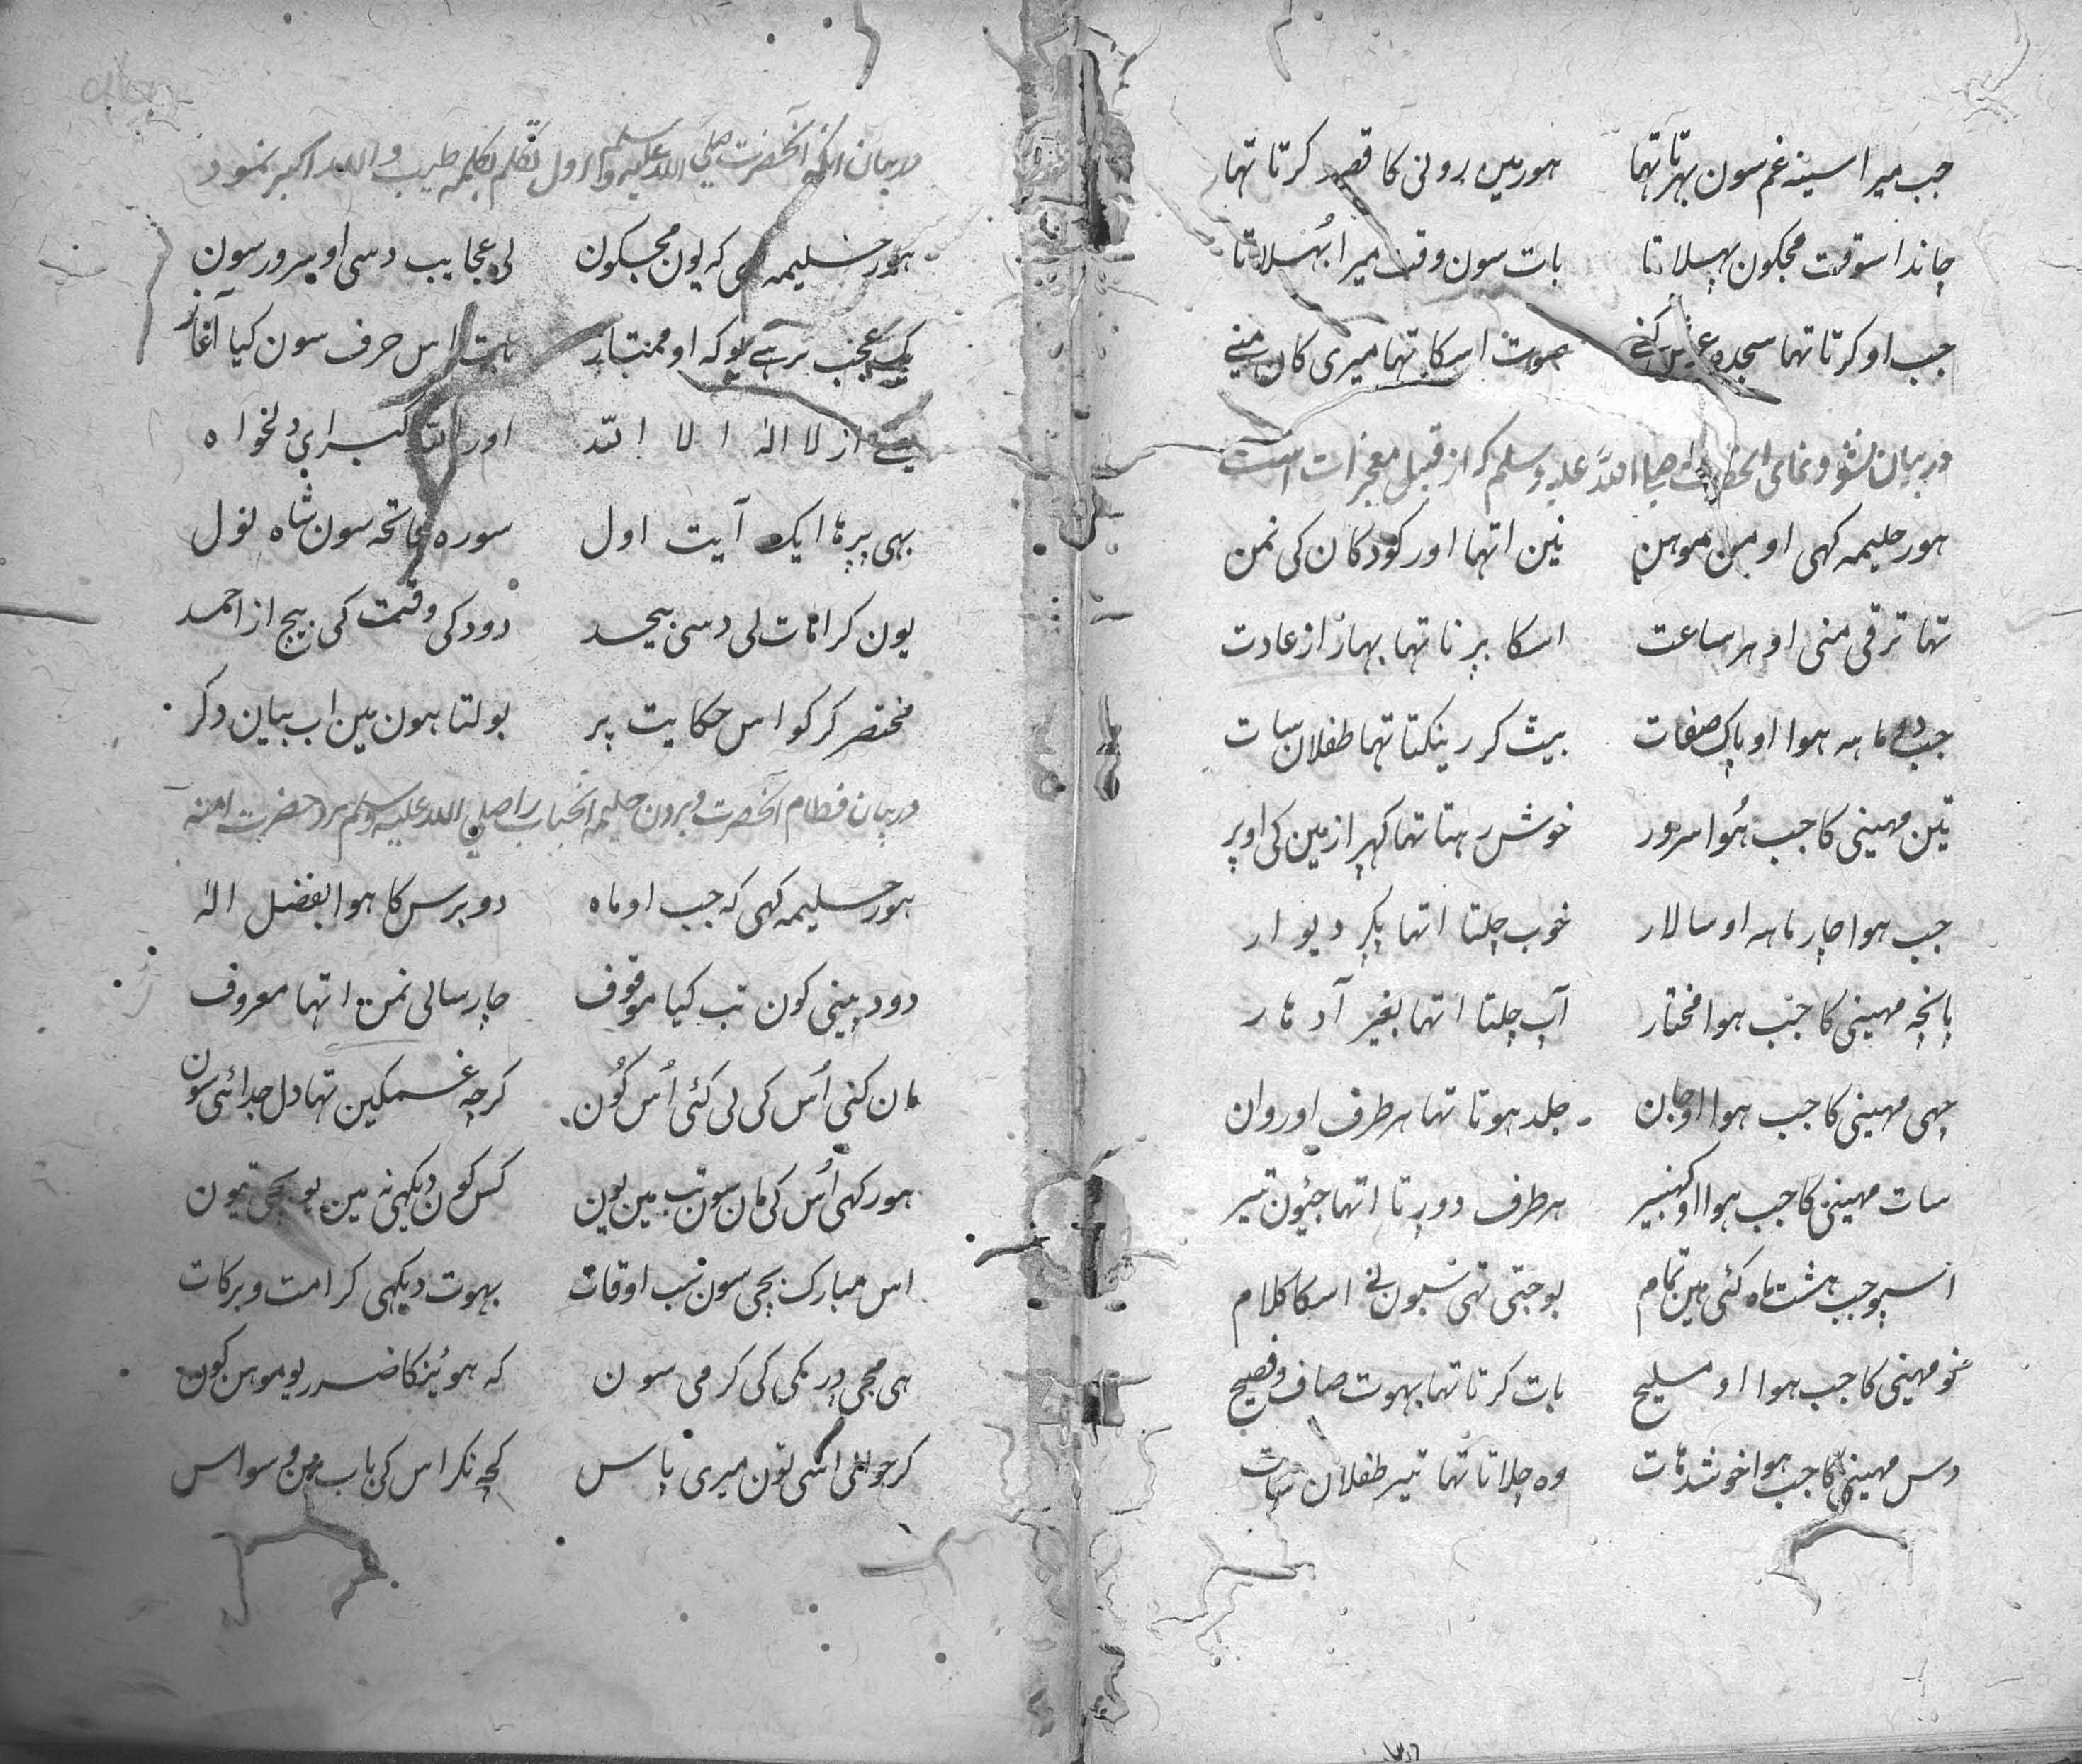 جب میرا سینہ غم سون بہرتا تہا ہور میں رونی کا قصد کرتا تہا
چاند اسوقت مجکون پہسلاتا بات سون وقت میرا بُہسلاتا
جب او کرتا تہا سجدہ عرش کنے صوت اسکا تہا میری کان منے
در بیان نشو و نمای آنحضرت صلی اللہ علیہ وسلم کہ از قبیل معجزات است
ہور حلیمہ کہی او من موہن نین اتہا اور کودکان کی نمن
تہا ترقی منی او ہر ساعت اسکا برنا تہا بہار از عادت
جب دو ماہہ ہوا او پاک صفات بیٹ کر رینکتا تہا طفلان سات
تین مہینی کا جب ہُوا سرور خوش رہتا تہا کہرا زمین کی اوپر
جب ہوا چار ماہہ او سالار خوب چلتا اتہا پکر دیوار
پانچہ مہینی کا جب ہوا مختار آپ چلتا اتہا بغیر آدہار
چہی مہینی کا جب ہوا او جان جلد ہوتا تہا ہر طرف او روان
سات مہینی کا جب ہوا او کہنبیر ہر طرف دورتا اتہا جیُون تیر
اسپو جب ہشت ماہ کئی ہین تمام بوجتی تہی سبون نے اسکا کلام
نو مہینی کا جب ہوا او ملیح بات کرتا تہا بہوت صاف و فصیح
دس مہینی کا جب ہوا خوشذات وہ چلاتا تہا تیر طفلان سات
در بیان آنکہ آنحضرت صلی اللہ علیہ وسلم اول تکلم بکلمہ طیب واللہ اکبر نمود
ہور حلیمہ کہی کہ یون مجکون لی عجایب دسی او سرور سون
یک عجب تر ہے یو کہ او ممتاز بات اس حرف سون کیا آغاز
یعنے از لا الہ الا اللہ اور اللہ اکبر ای دلخواہ
بہی پرہا ایک آیت اول سورہ فاتحہ سون شاہ
یون کرامات لی دسی بیحد دود کی وقت کی بیچ از احمد
مختصر کر کو اس حکایت پر بولتا ہون مین اب بیان دکر
در بیان فطام آنحضرت و بردن حلیمہ آنجناب را صلی اللہ علیہ وسلم نزد حضرت امنہ
ہور حلیمہ کہی کہ جب او ماہ دو برس کا ہوا بفضل الہ
دود پینی کون تب کیا موقوف چار سالی نمن اتہا معروف
مان کنی اُس کی لی کئی اُس کُون کرچہ غمکین تہا دل جدائی سون
ہور کہی اُس کی مان سون تب مین یون کس کون دیکہی نہ مین یو بچی تیون
اس مبارک بچی سون سب اوقات بہوت دیکہی کرامت و برکات
ہی مجی در مکی کی کرمی سون کہ ہوئینکا ضرر یو موہن کون
کر حوالی اسی تون میری پاس کچہ نکر اس کی باب مین وسواس